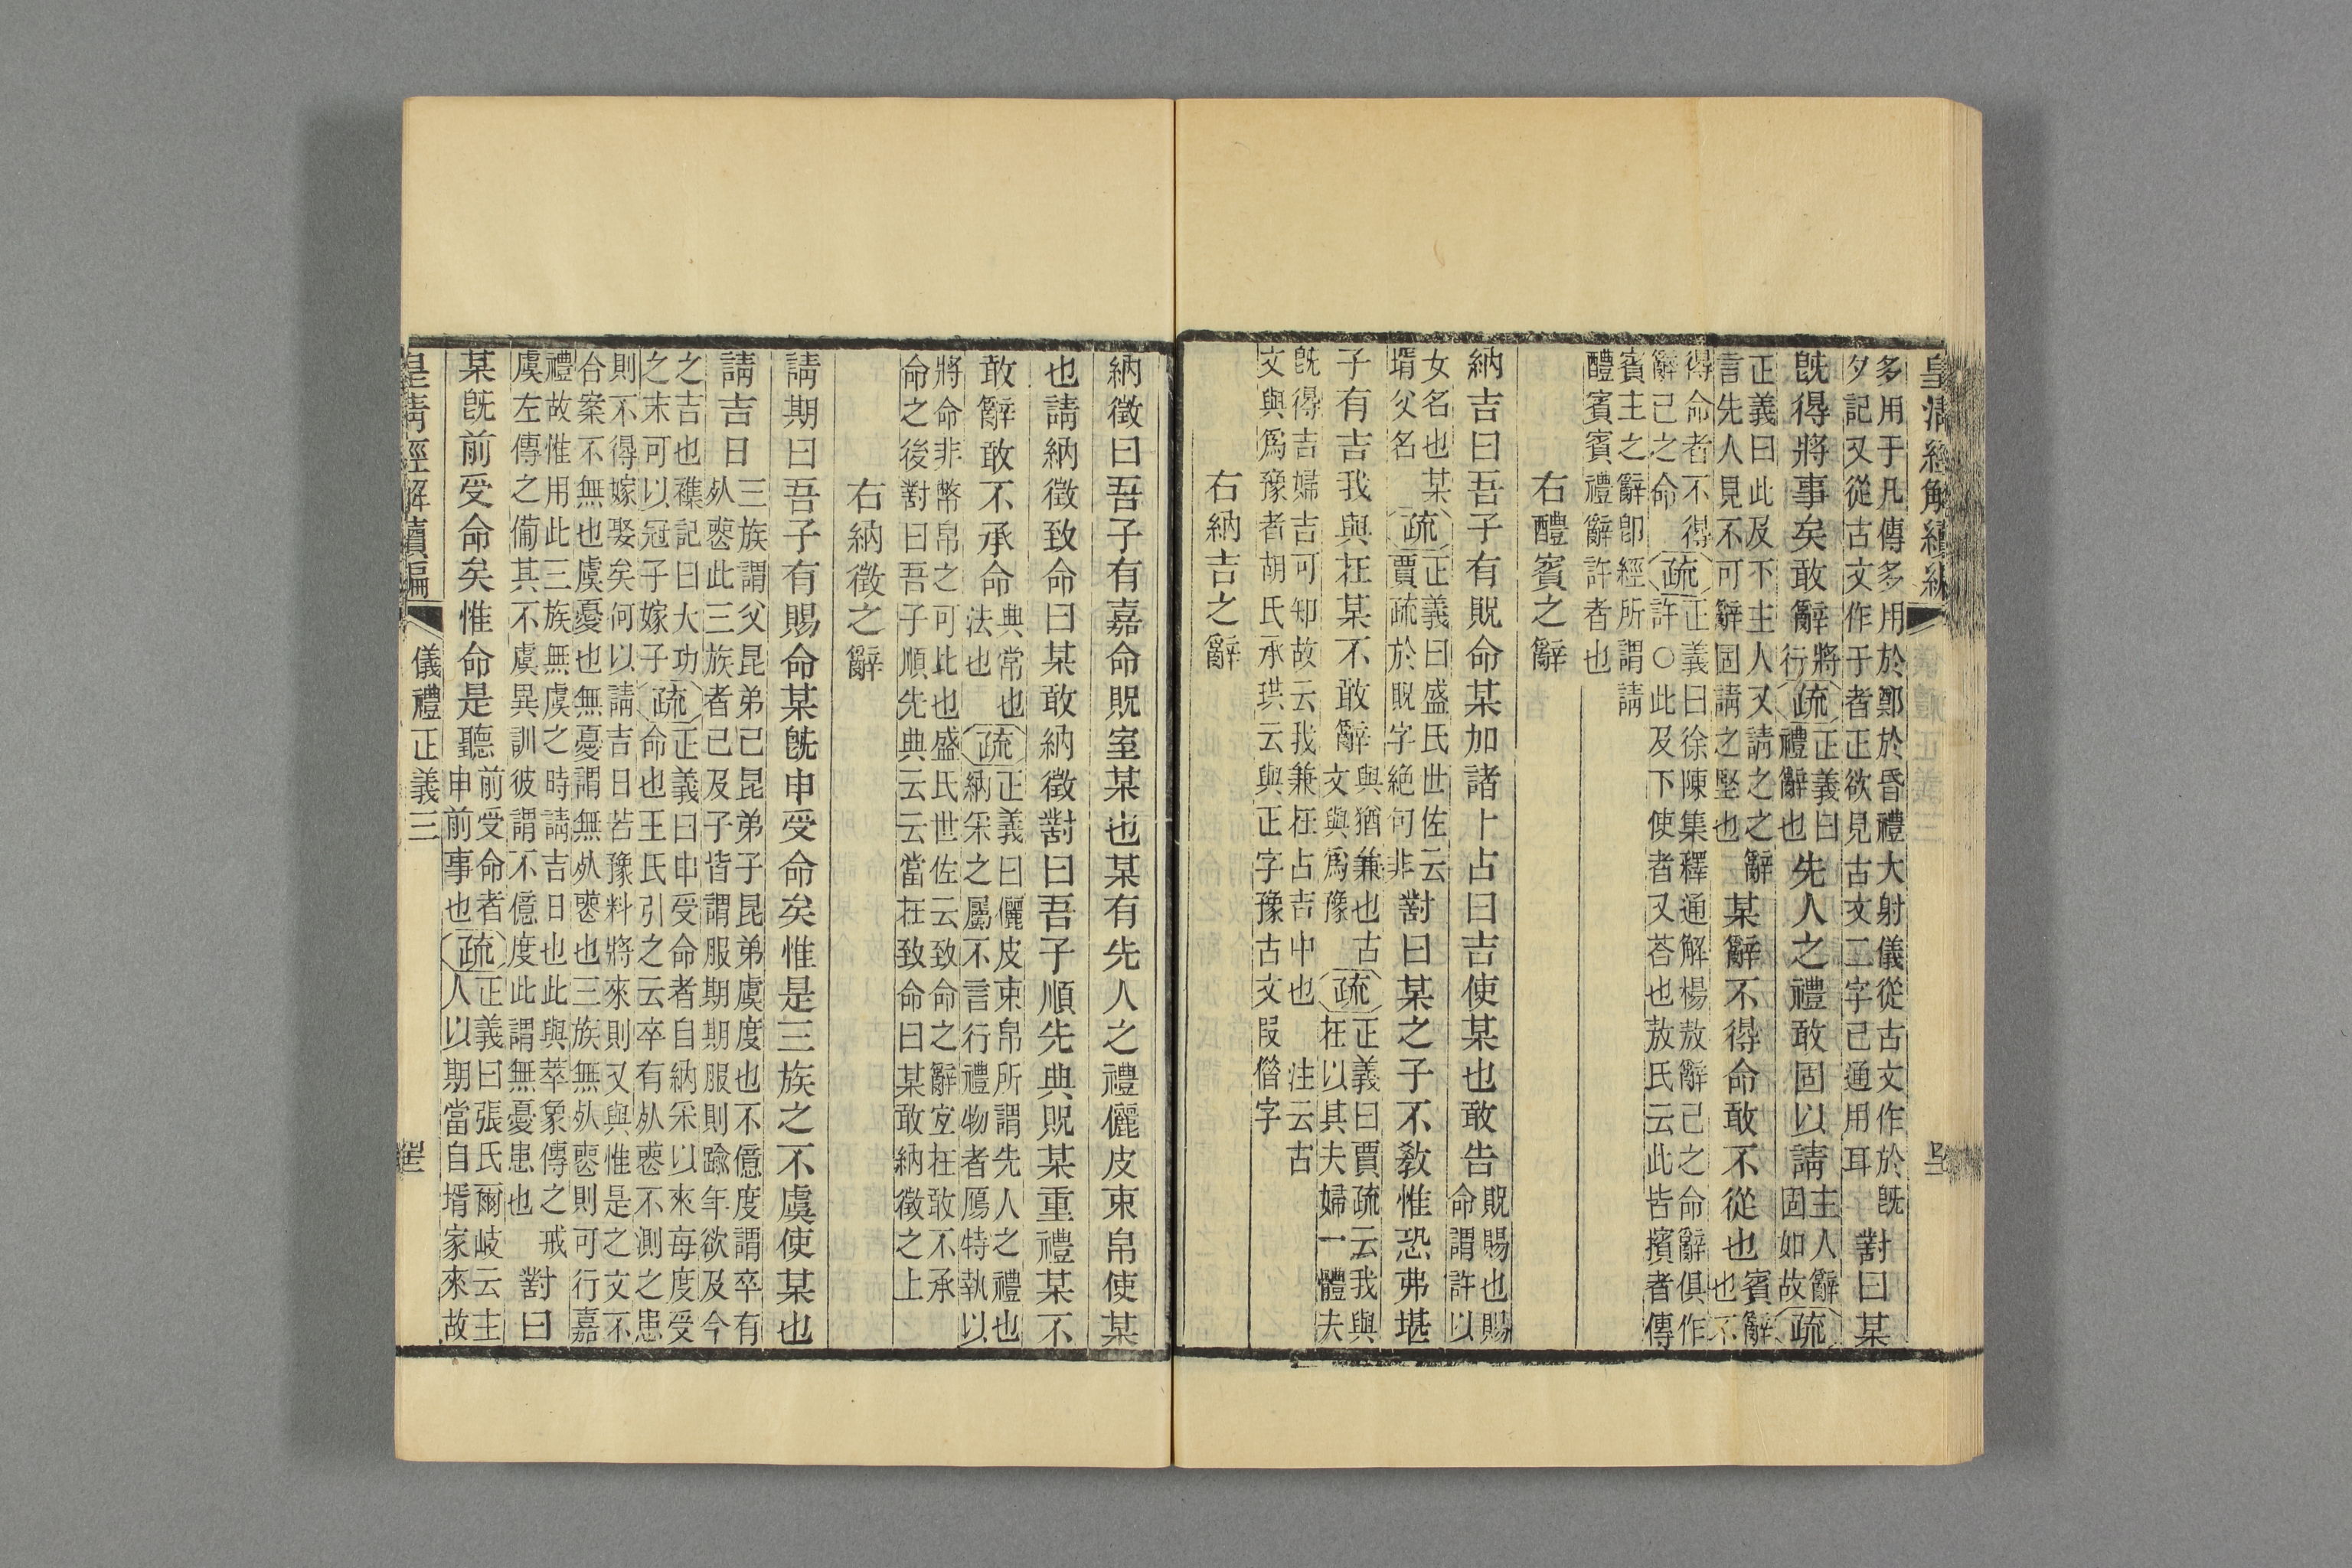 皇清經解續編
多用于凡傳多用於鄭於昏禮大射儀從古文作於既夕記又從古文作于者正欲見古文二字已通用耳對曰某
既得將事矣敢辭將行疏正義曰禮辭也先人之禮敢固以請主人辭固如故疏
正義曰此及不主人又請之之辭言先人見不可辭固請之堅也某辭不得命敢不從也賓辭也不
得命者不得辭己之命疏正義曰徐陳集釋通解楊敖辭己之命辭俱作許○此及下使者又荅也敖氏云此皆擯者傳
賓主之辭卽經所謂請醴賓賓禮辭許者也
右醴賓之辭
納吉曰吾子有貺命某加諸卜占曰吉使某也敢告貺賜也賜命謂許以
女名也某壻父名疏正義曰盛氏世佐云賈疏於貺字絶句非對曰某之子不敎惟恐弗堪
子有吉我與在某不敢辭與猶兼也古文與爲豫疏正義曰賈疏云我與在以其夫婦一體夫
既得吉婦吉可知故云我兼在占吉中也注云古文與爲豫者胡氏承珙云與正字豫古文叚僭字
右納吉之辭
納徵曰吾子有嘉命貺室某也某有先人之禮儷皮束帛使某
也請納徵致命曰某敢納徵對曰吾子順先典貺某重禮某不
敢辭敢不承命典常也法也疏正義曰儷皮束帛所謂先人之禮也納采之屬不言行禮物者鴈特執以
將命非幣帛之可比也盛氏世佐云致命之辭宜在敢不承命之後對曰吾子順先典云云當在致命曰某敢納徵之上
右納徵之辭
請期曰吾子有賜命某既申受命矣惟是三族之不虞使某也
請吉日三族謂父昆弟己昆弟子昆弟虞度也不億度謂卒有死喪此三族者己及子皆謂服期期服則踰年欲及今
之吉也雜記曰大功之末可以冠子嫁子疏正義曰申受命者自納采以來每度受命也王氏引之云卒有死喪不測之患
則不得嫁娶矣何以請吉日若豫料將來則又與惟是之文不合案不無也虞憂也無憂謂無死喪也三族無死喪則可行嘉
禮故惟用此三族無虞之時請吉日也此與萃象傳之戒虞左傳之備其不虞異訓彼謂不億度此謂無憂患也對曰
某既前受命矣惟命是聽前受命者申前事也疏正義曰張氏爾岐云主人以期當自壻家來故
皇清經解續編
儀禮正義三